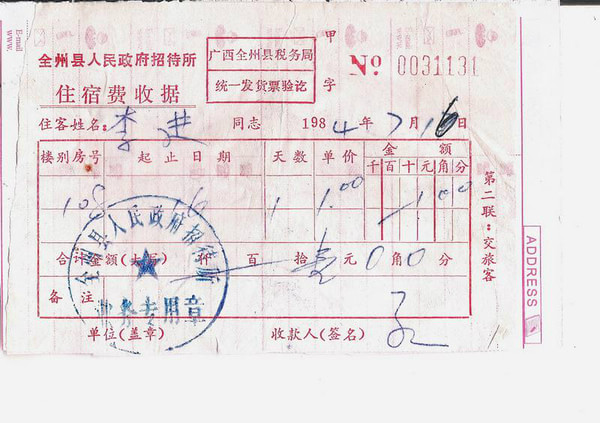 全州县人民政府招待所
广西全州县税务局
统一发货票验讫
甲
字
No. 0031131
住宿费收据
住客姓名: 李进 同志 1984年7月16日
楼别房号 起止日期 天数 单价 金额
千百十元角分
108 16 1 1.00 1 0 0
合计金额(大写) 仟 百 拾 壹元 0角 0分
备注
单位(盖章) 收款人(签名)
全州县人民政府招待所
财务专用章
第二联:交旅客
ADDRESS
E-mail
www.